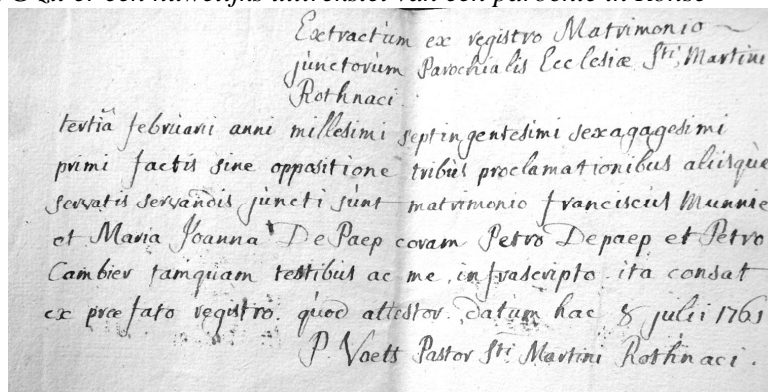 Extractum ex registro Matrimonio
junctorum Parochialis Ecclesiæ Sti Martini
Rothnaci
tertiâ februarii anni millesimi septingentesimi sexagagesimi
primi factis sine oppositione tribùs proclamationibus aliisquè
servatis servandis juncti sunt matrimonio franciscus Munnie
et Maria Joanna De Paep coram Petro Depaep et Petro
Cambier tamquam testibus ac me infrascripto ita consat
ex præfato registro quod attestor. datum hac 8 julii 1761
P. Vaets Pastor Sti Martini Rothnaci.